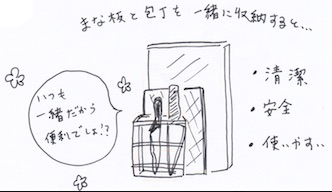 まな板と包丁を一緒に収納すると…
いつも
一緒だから
便利でしょ!?
・清潔
・安全
・使いやすい